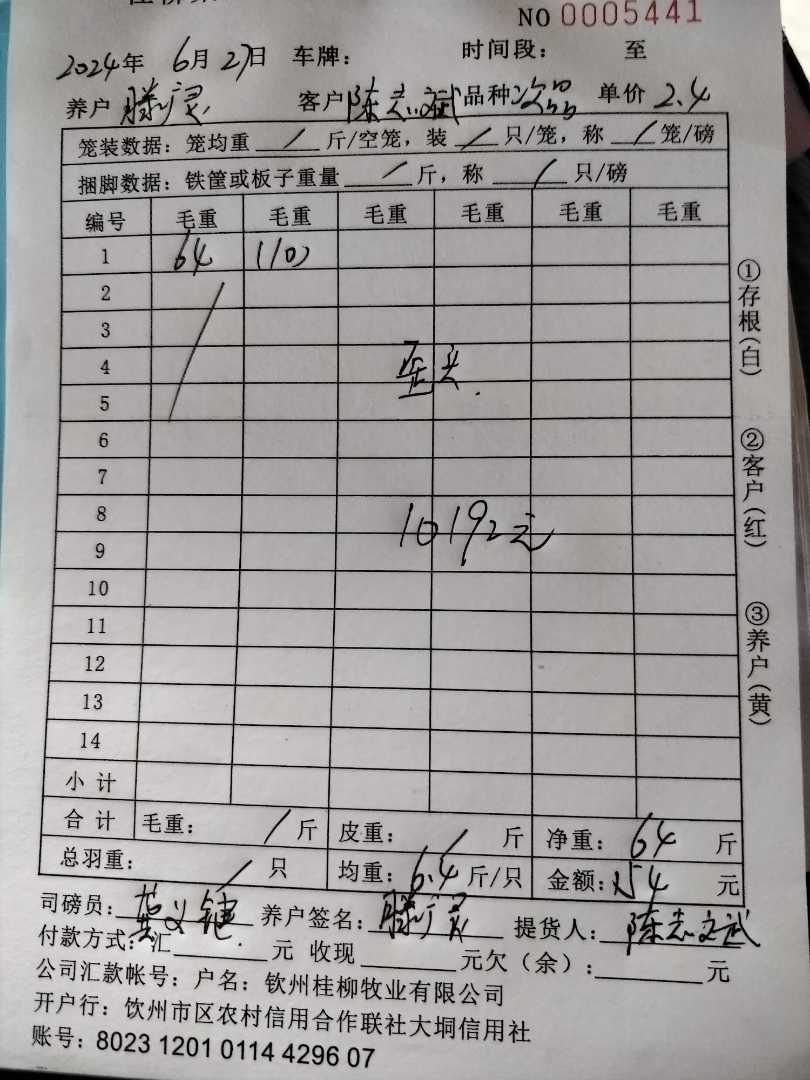 NO 0005441
2024年 6月 27日 车牌： 时间段： 至
养户 滕广灵 客户 陈志斌 品种 次品 单价 2.4
笼装数据：笼均重 / 斤/空笼，装 / 只/笼，称 / 笼/磅
捆脚数据：铁筐或板子重量 / 斤，称 / 只/磅
编号 毛重 毛重 毛重 毛重 毛重 毛重
1 64 (10)
2
3
4 歪头.
5
6
7
8
10192元
9
10
11
12
13
14
小计
合计 毛重： / 斤 皮重： / 斤 净重：64 斤
总羽重： / 只 均重：6.4 斤/只 金额：154 元
司磅员： 养户签名：滕广灵 提货人：陈志斌
付款方式：汇 元 收现 元欠（余）： 元
公司汇款帐号：户名：钦州桂柳牧业有限公司
开户行：钦州市区农村信用合作联社大垌信用社
账号：8023 1201 0114 4296 07
①存根(白)
②客户(红)
③养户(黄)